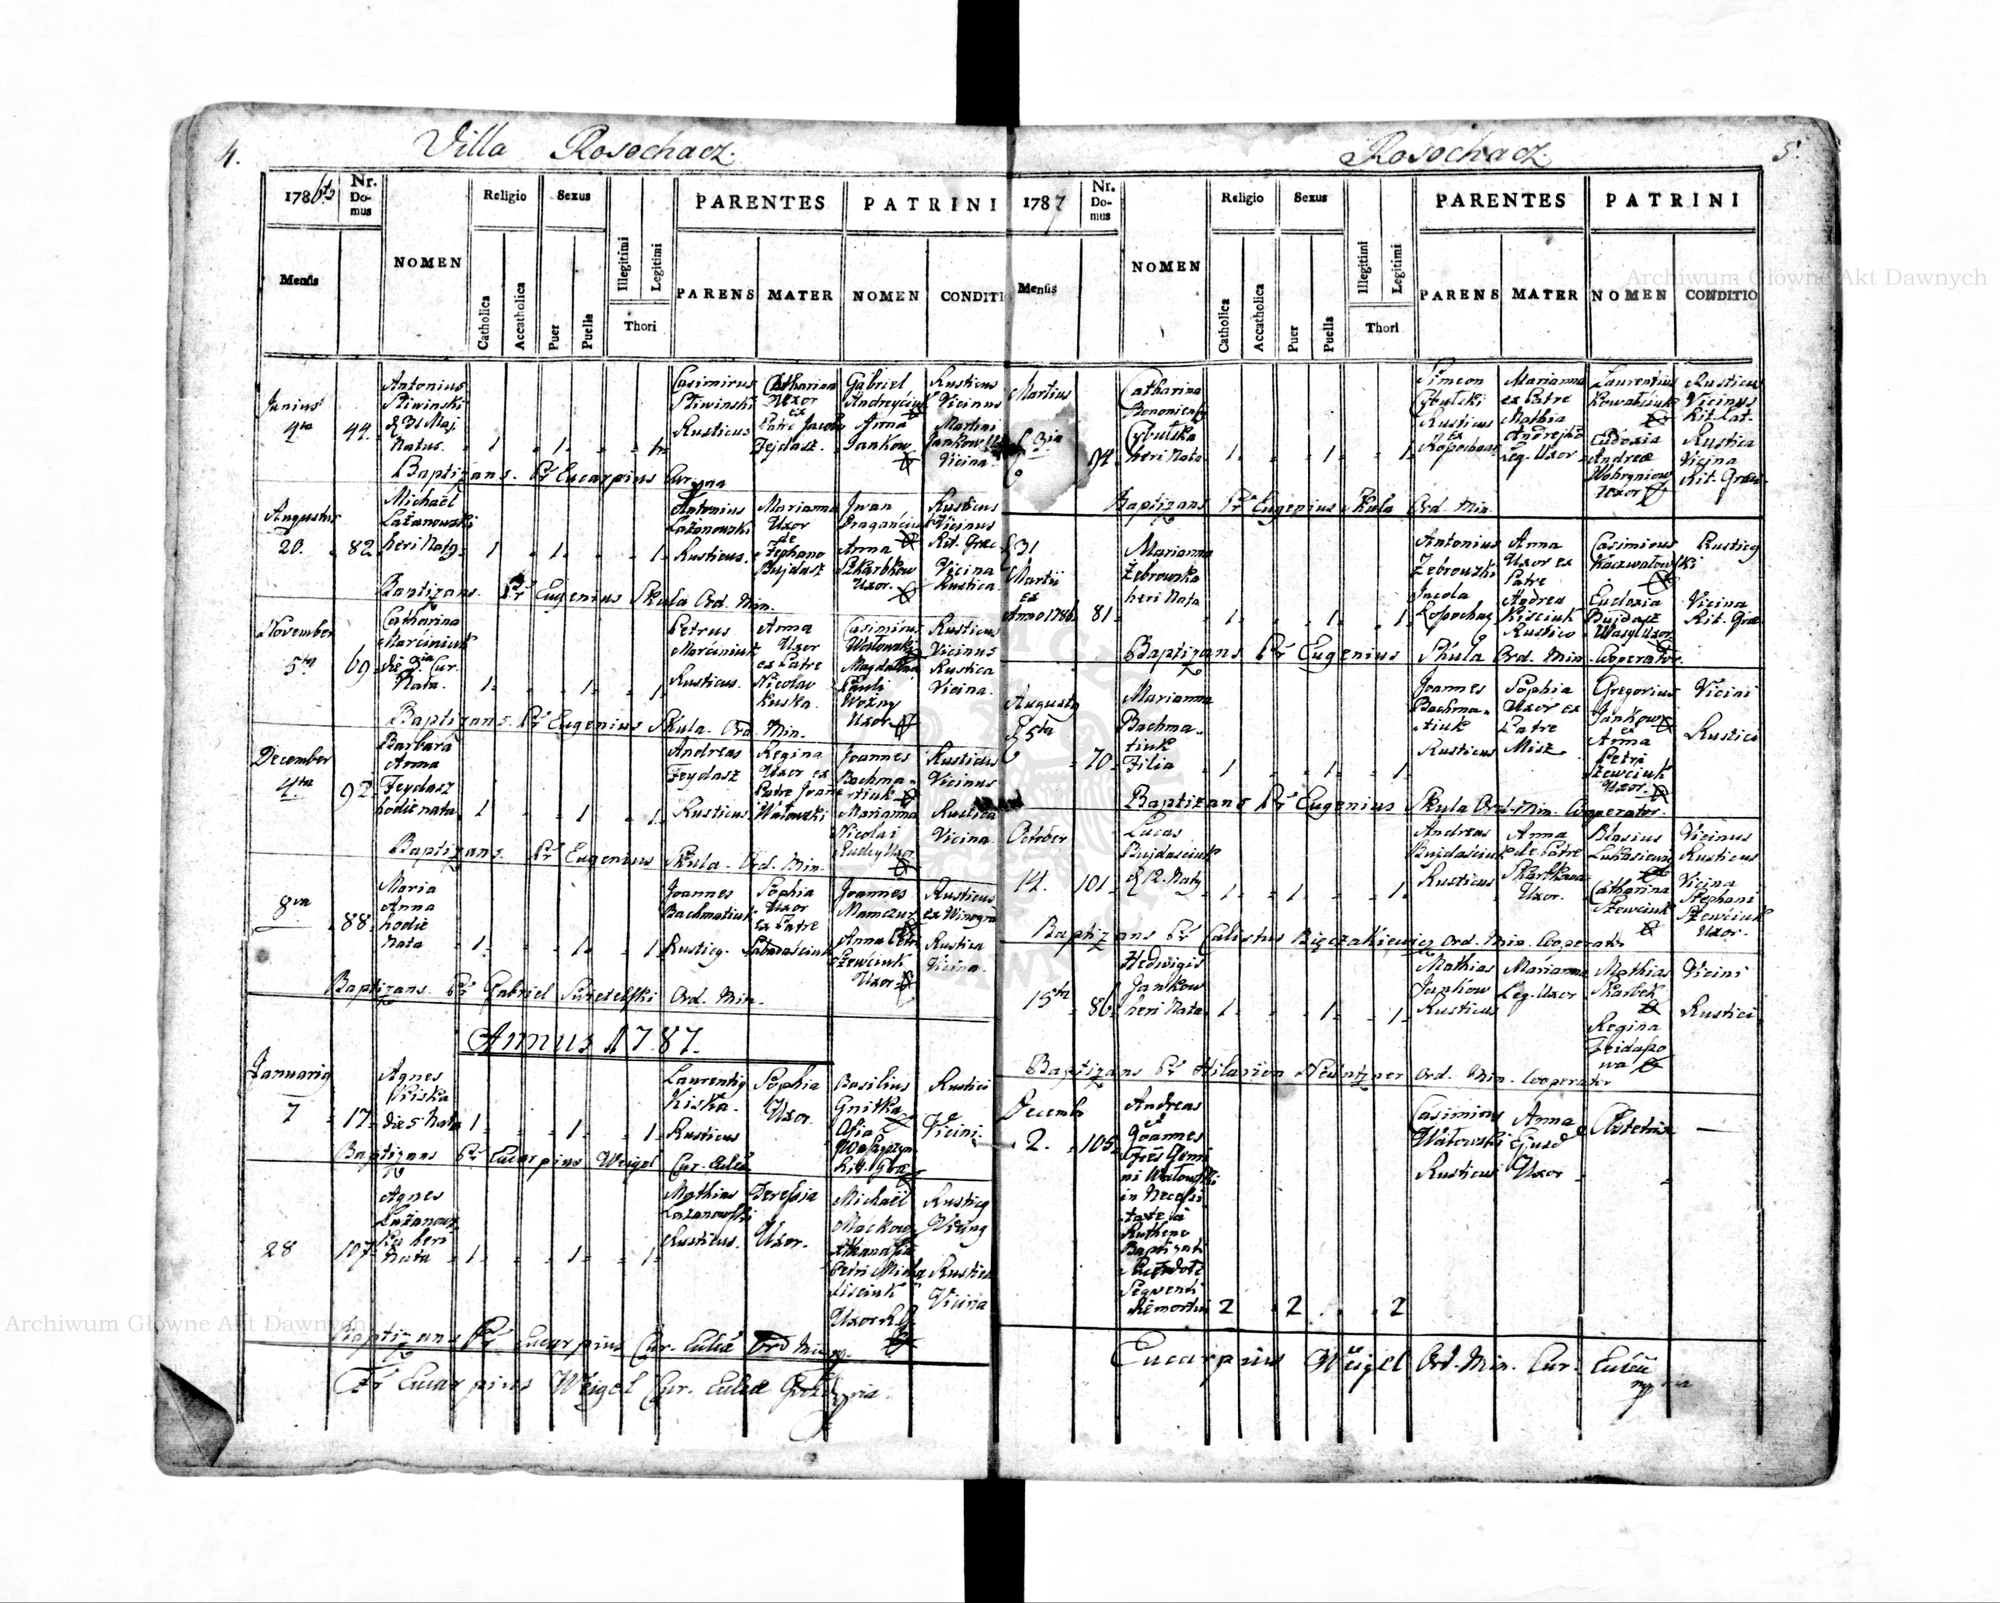 4.
Villa Rosochacz.
1786to
Nr. Domus
NOMEN
Religio
Sexus
PARENTES
PATRINI
Mensis
Catholica
Accatholica
Puer
Puella
Illegitimi
Legitimi
Thori
PARENS
MATER
NOMEN
CONDITI
Junius 4ta
44.
Antonius
Sliwinski
d 31 Maj.
Natus.
1
1
1
Casimirus
Sliwinski
Rusticus
Catharina
Uxor
ex
Patre Jacobo
Fejdasz.
Gabriel
Andreyciuk
Anna
Jankow
Rusticus
Vicinus
Martini
Jankow Ux
Vicina.
Baptizans. Pr Eucarpius Cur
Augustus
20.
82
Michaël
Lazanowski
heri Natg
1
1
1
Antonius
Lazanowski
Rusticus.
Marianna
Uxor
de
Stephano
Bujdasz
Iwan
Draganciuk
Anna
Skarbkow
Uxor.
Rusticus
Vicinus
Rit. Græc
Vicina
Rustica.
Baptizans. Pr Eugenius Skula Ord. Min.
November
5ta
69
Catharina
Marciniuk
die 3ia Cur.
Nata.
1
1
1
Petrus
Marciniuk
Rusticus.
Anna
Uxor
ex Patre
Nicolao
Kuska.
Casimirus
Watowski
Magdalena
Pauli
Wozny
Uxor
Rusticus
Vicinus
Rustica
Vicina.
Baptizans. Pr Eugenius Skula. Ord. Min.
December
4ta
92.
Barbara
Anna
Feydasz
hodie nata
1
1
1
Andreas
Feydasz
Rusticus
Regina
Uxor ex
Patre Joane
Watowski
Joannes
Bachma-
tiuk
Marianna
Nicolai
Uxor
Rusticus
Vicinus
Rustica
Vicina.
Baptizans. Pr Eugenius Skula. Ord. Min.
8va
88.
Maria
Anna
hodie
Nata
1
1
1
Joannes
Bachmatiuk
Rusticg.
Sophia
Uxor
ex Patre
Joannes
Mamczur
Anna Petri
Szewciuk
Uxor
Rusticus
ex Winogra
Rustica
Vicina.
Baptizans. Pr Gabriel Swietelski Ord. Min.
Annus 1787.
Januarig
7
17.
Agnes
Kiska
die 5 Nata
1
1
1
Laurentig
Kiska.
Rusticus
Sophia
Uxor.
Basilius
Gnitka
Rustici
Vicini.
Baptizans Pr Eucarpius Weigel Cur. Eccliæ
28
107
Agnes
Lazanows
ka heri
Nata
1
1
1
Mathias
Lazanowski
Rusticus.
Teressia
Uxor.
Michaël
Mackow
Petri
Uxor
Rusticg
Vicing
Rustica
Vicina
Baptizans Pr Eucarpius Cur. Eccliæ Ord Min
Fr Eucarpius Weigel Cur. Eccliæ
5.
Rosochacz
1787
Nr. Domus
NOMEN
Religio
Sexus
PARENTES
PATRINI
Mensis
Catholica
Accatholica
Puer
Puella
Illegitimi
Legitimi
Thori
PARENS
MATER
NOMEN
CONDITIO
Martius
d 3ia
94.
Catharina
Bononiensis
Cybulska
heri Nata
1
1
1
Simeon
Cybulski
Rusticus
ex
Rosochacz
Marianna
ex Patre
Mathia
Andrejko
Leg. Uxor
Laurentius
Kowalciuk
Eudoxia
Andreæ
Wohryniow
Uxor
Rusticus
Vicinus
Rit. Lat.
Rustica
Vicina
Rit. Græc.
Baptizans Pr Eugenius Skula Ord. Min.
d 31
Martii
ex
Anno 1786
81.
Marianna
Zebrowska
heri Nata
1
1
1
Antonius
Zebrowski
Incola
Anna
Uxor ex
Patre
Andrea
Kisciuk
Rustico
Casimirus
Kaczwatowski
Eudoxia
Bujdasz
Wasyl Uxor
Rusticg
Vicina
Rit. Græ.
Baptizans Pr Eugenius Skula Ord. Min. Cooperator.
Augustg
d 5ta
70
Marianna
Bachma-
tiuk
Filia
1
1
1
Joannes
Bachma-
tiuk
Rusticus
Sophia
Uxor ex
Patre
Misz
Gregorius
Jankow
et
Anna
Petri
Szewciuk
Uxor.
Vicini
Rustici
Baptizans Pr Eugenius Skula Ord. Min. Cooperator.
October
14.
101
Lucas
Bujdasciuk
d 12. Natg
1
1
1
Andreas
Bujdasciuk
Rusticus
Anna
de Patre
Uxor.
Blasius
Lukasiewicz
Catharina
Szewciuk
Vicinus
Rusticus
Vicina
Stephani
Szewciuk
Uxor.
Baptizans Pr Calistus Ord. Min. Cooperator
15ta
86
Hedwigis
Jankow
heri Nata
1
1
1
Mathias
Jankow
Rusticus
Marianna
Leg. Uxor
Mathias
Skarbek
Regina
Feidaszo
wa
Vicini
Rustici
Baptizans Pr Hilarion Ord. Min. Cooperator
Decemb
2.
105
Andreas
Joannes
Fres Gemi
ni Watowski
in Necessi
tate a
Rutheno
Baptizati
Sacerdote
Sequenti
die mortui
2
2
2
Casimirus
Watowski
Rusticus
Anna
Ejusd
Uxor
—
Eucarpius Weigel Ord. Min. Cur. Eccliæ
Archiwum Główne Akt Dawnych
Archiwum Główne Akt Dawnych